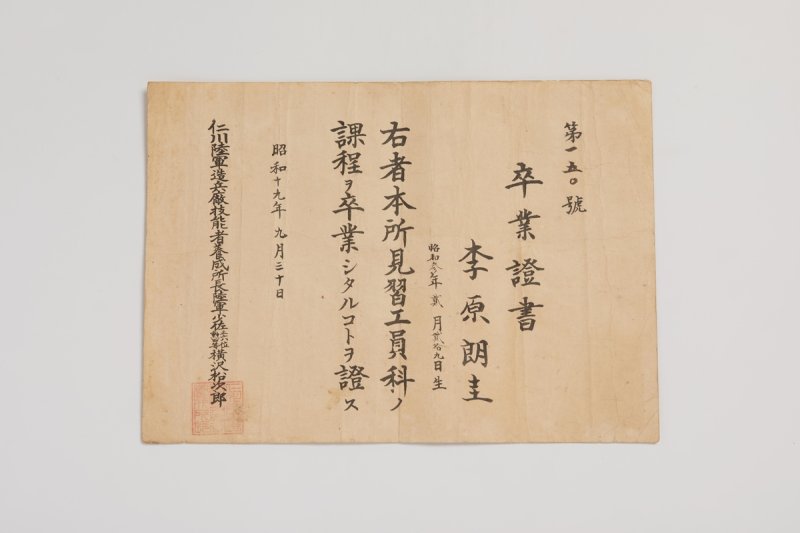 第一五〇號
卒業證書
李原朗圭
昭和参年貳月貳拾九日生
右者本所見習工員科ノ
課程ヲ卒業シタルコトヲ證ス
昭和十九年九月三十日
仁川陸軍造兵廠技能者養成所長陸軍少佐正六位勲四等横沢和次郎